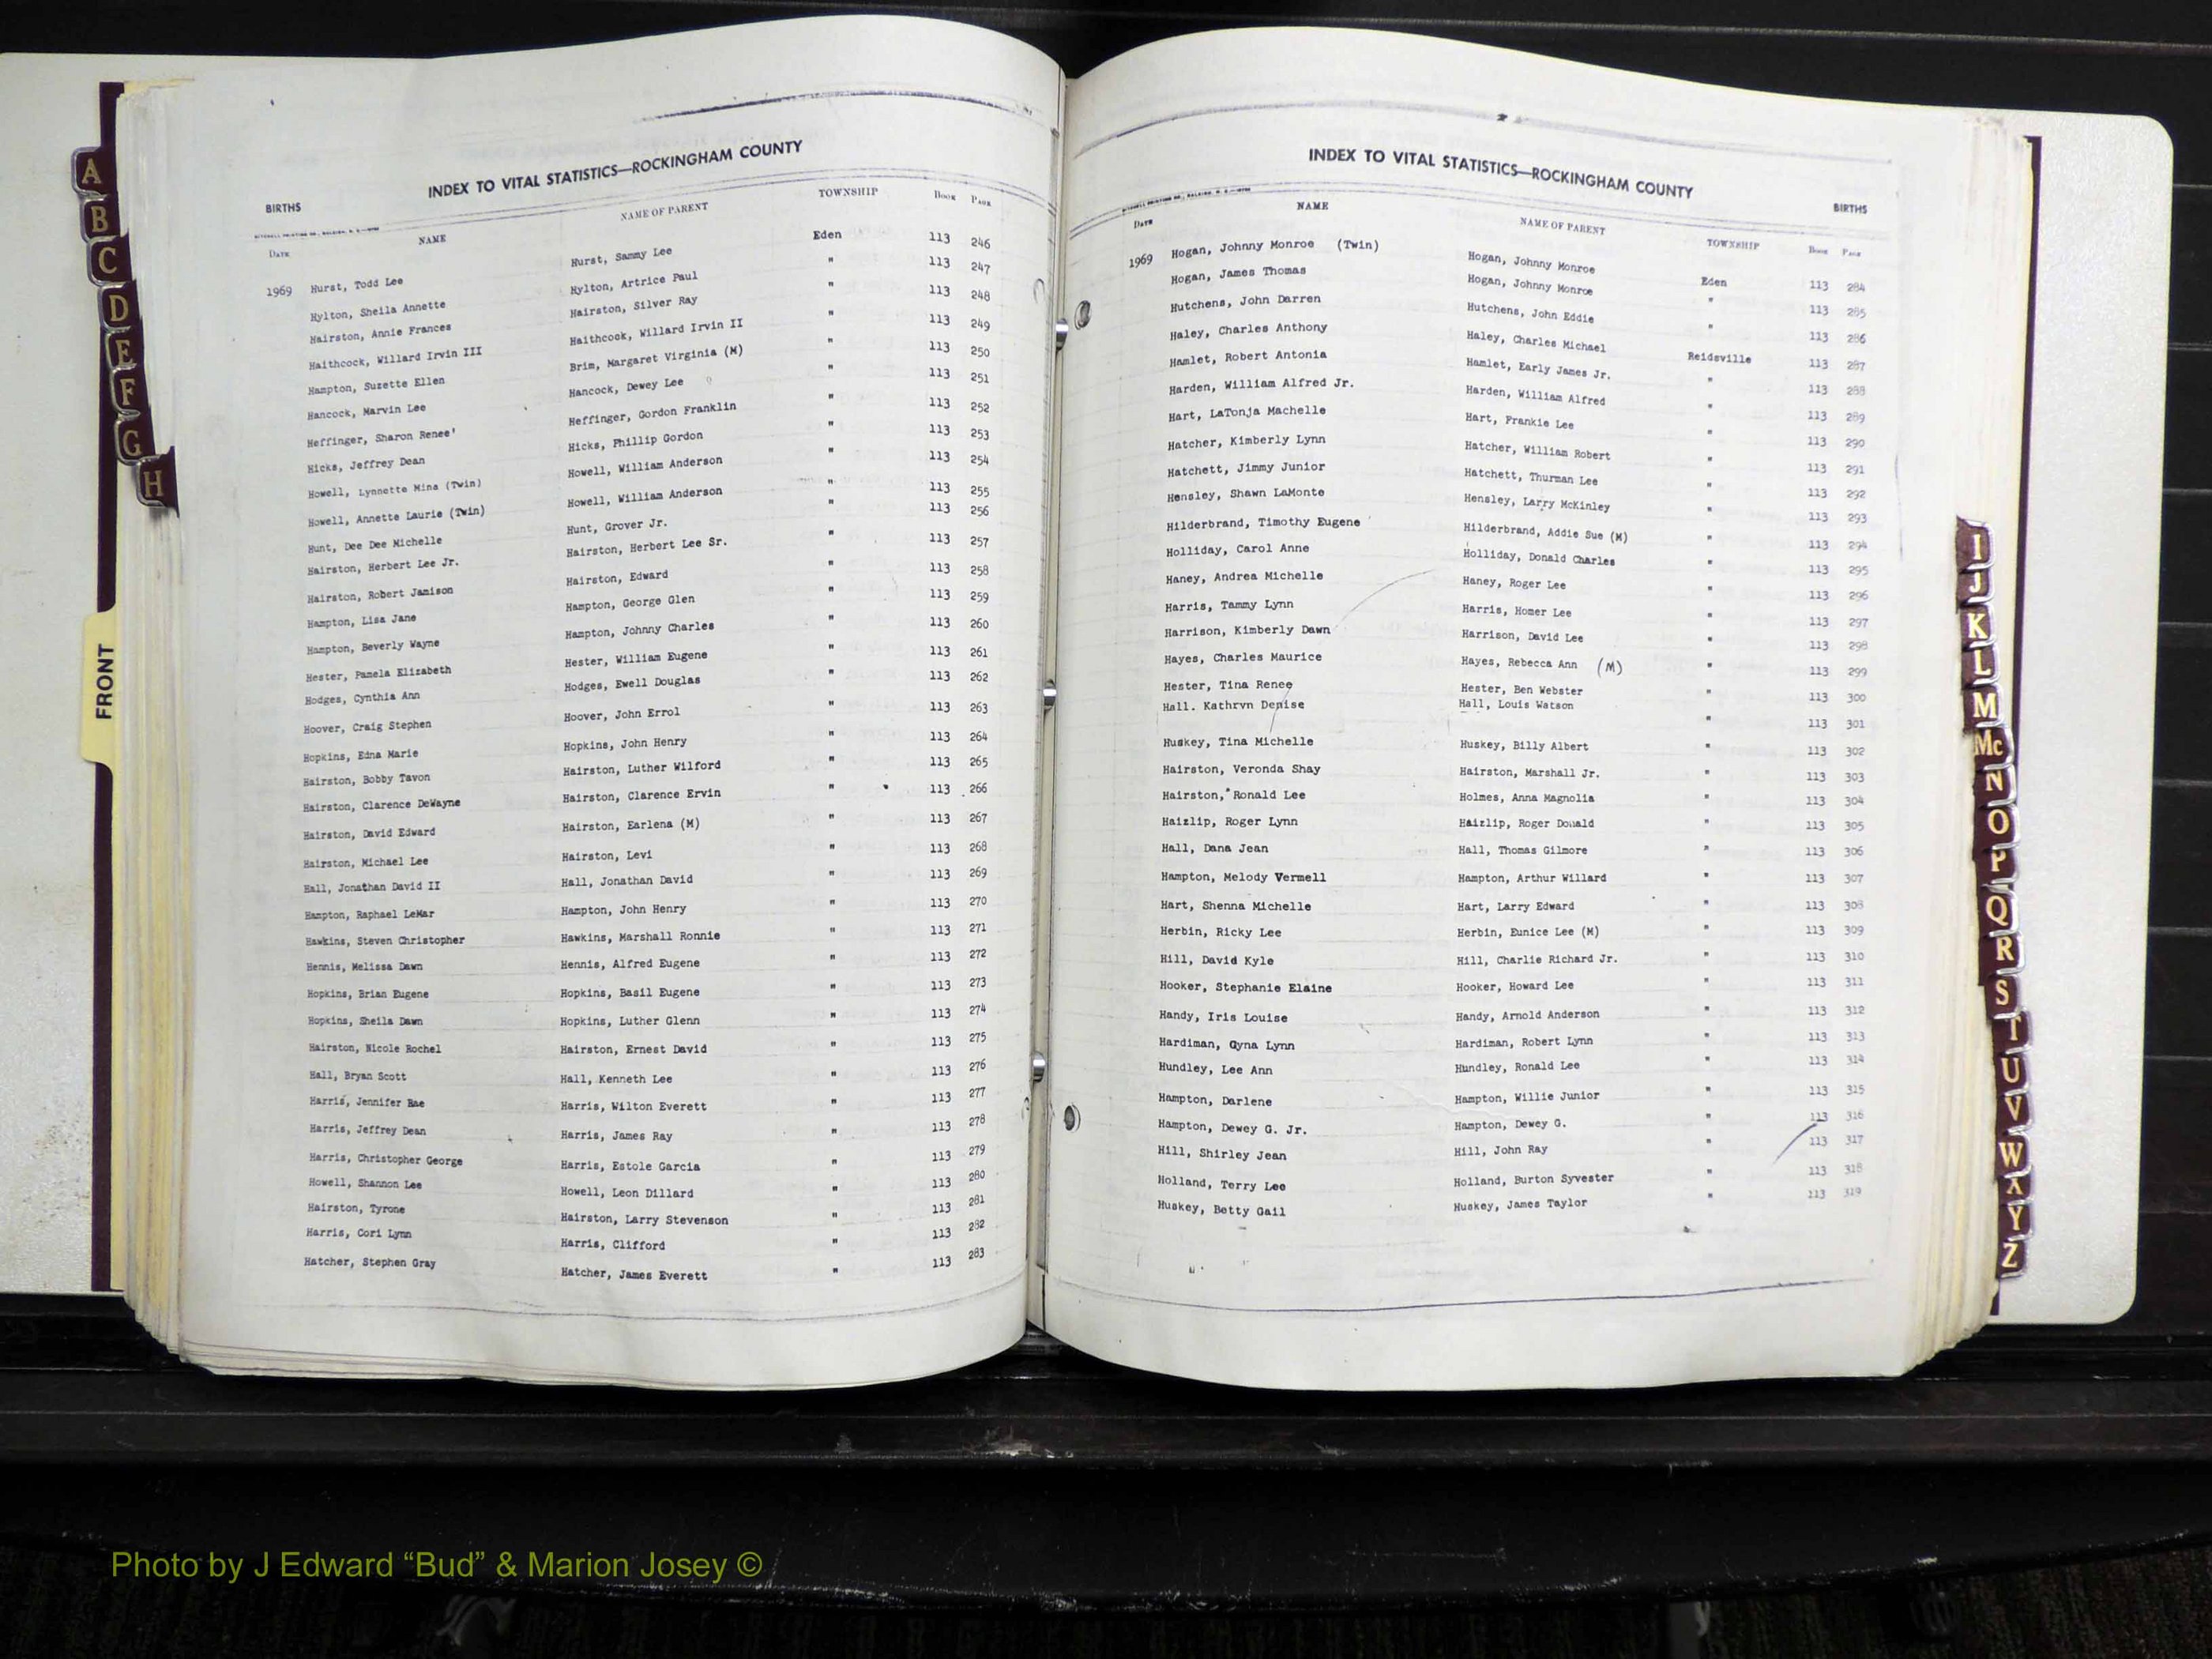 A
B
C
D
E
F
G
H
FRONT
INDEX TO VITAL STATISTICS—ROCKINGHAM COUNTY
BIRTHS
DATE NAME NAME OF PARENT TOWNSHIP BOOK PAGE
1969 Hurst, Todd Lee Hurst, Sammy Lee Eden 113 246
Hylton, Sheila Annette Hylton, Artrice Paul " 113 247
Hairston, Annie Frances Hairston, Silver Ray " 113 248
Haithcock, Willard Irvin III Haithcock, Willard Irvin II " 113 249
Hampton, Suzette Ellen Brim, Margaret Virginia (M) " 113 250
Hancock, Marvin Lee Hancock, Dewey Lee " 113 251
Heffinger, Sharon Renee' Heffinger, Gordon Franklin " 113 252
Hicks, Jeffrey Dean Hicks, Phillip Gordon " 113 253
Howell, Lynnette Mina (Twin) Howell, William Anderson " 113 254
Howell, Annette Laurie (Twin) Howell, William Anderson " 113 255
Hunt, Dee Dee Michelle Hunt, Grover Jr. " 113 256
Hairston, Herbert Lee Jr. Hairston, Herbert Lee Sr. " 113 257
Hairston, Robert Jamison Hairston, Edward " 113 258
Hampton, Lisa Jane Hampton, George Glen " 113 259
Hampton, Beverly Wayne Hampton, Johnny Charles " 113 260
Hester, Pamela Elizabeth Hester, William Eugene " 113 261
Hodges, Cynthia Ann Hodges, Ewell Douglas " 113 262
Hoover, Craig Stephen Hoover, John Errol " 113 263
Hopkins, Edna Marie Hopkins, John Henry " 113 264
Hairston, Bobby Tavon Hairston, Luther Wilford " 113 265
Hairston, Clarence DeWayne Hairston, Clarence Ervin " 113 266
Hairston, David Edward Hairston, Earlena (M) " 113 267
Hairston, Michael Lee Hairston, Levi " 113 268
Hall, Jonathan David II Hall, Jonathan David " 113 269
Hampton, Raphael LeMar Hampton, John Henry " 113 270
Hawkins, Steven Christopher Hawkins, Marshall Ronnie " 113 271
Hennis, Melissa Dawn Hennis, Alfred Eugene " 113 272
Hopkins, Brian Eugene Hopkins, Basil Eugene " 113 273
Hopkins, Sheila Dawn Hopkins, Luther Glenn " 113 274
Hairston, Nicole Rochel Hairston, Ernest David " 113 275
Hall, Bryan Scott Hall, Kenneth Lee " 113 276
Harris, Jennifer Rae Harris, Wilton Everett " 113 277
Harris, Jeffrey Dean Harris, James Ray " 113 278
Harris, Christopher George Harris, Estole Garcia " 113 279
Howell, Shannon Lee Howell, Leon Dillard " 113 280
Hairston, Tyrone Hairston, Larry Stevenson " 113 281
Harris, Cori Lynn Harris, Clifford " 113 282
Hatcher, Stephen Gray Hatcher, James Everett " 113 283
INDEX TO VITAL STATISTICS—ROCKINGHAM COUNTY
BIRTHS
DATE NAME NAME OF PARENT TOWNSHIP BOOK PAGE
1969 Hogan, Johnny Monroe (Twin) Hogan, Johnny Monroe Eden 113 284
Hogan, James Thomas Hogan, Johnny Monroe " 113 285
Hutchens, John Darren Hutchens, John Eddie " 113 286
Haley, Charles Anthony Haley, Charles Michael Reidsville 113 287
Hamlet, Robert Antonia Hamlet, Early James Jr. " 113 288
Harden, William Alfred Jr. Harden, William Alfred " 113 289
Hart, LaTonja Machelle Hart, Frankie Lee " 113 290
Hatcher, Kimberly Lynn Hatcher, William Robert " 113 291
Hatchett, Jimmy Junior Hatchett, Thurman Lee " 113 292
Hensley, Shawn LaMonte Hensley, Larry McKinley " 113 293
Hilderbrand, Timothy Eugene Hilderbrand, Addie Sue (M) " 113 294
Holliday, Carol Anne Holliday, Donald Charles " 113 295
Haney, Andrea Michelle Haney, Roger Lee " 113 296
Harris, Tammy Lynn Harris, Homer Lee " 113 297
Harrison, Kimberly Dawn Harrison, David Lee " 113 298
Hayes, Charles Maurice Hayes, Rebecca Ann (M) " 113 299
Hester, Tina Renee Hester, Ben Webster " 113 300
Hall. Kathryn Denise Hall, Louis Watson " 113 301
Huskey, Tina Michelle Huskey, Billy Albert " 113 302
Hairston, Veronda Shay Hairston, Marshall Jr. " 113 303
Hairston, Ronald Lee Holmes, Anna Magnolia " 113 304
Haizlip, Roger Lynn Haizlip, Roger Donald " 113 305
Hall, Dana Jean Hall, Thomas Gilmore " 113 306
Hampton, Melody Vermell Hampton, Arthur Willard " 113 307
Hart, Shenna Michelle Hart, Larry Edward " 113 308
Herbin, Ricky Lee Herbin, Eunice Lee (M) " 113 309
Hill, David Kyle Hill, Charlie Richard Jr. " 113 310
Hooker, Stephanie Elaine Hooker, Howard Lee " 113 311
Handy, Iris Louise Handy, Arnold Anderson " 113 312
Hardiman, Gyna Lynn Hardiman, Robert Lynn " 113 313
Hundley, Lee Ann Hundley, Ronald Lee " 113 314
Hampton, Darlene Hampton, Willie Junior " 113 315
Hampton, Dewey G. Jr. Hampton, Dewey G. " 113 316
Hill, Shirley Jean Hill, John Ray " 113 317
Holland, Terry Lee Holland, Burton Syvester " 113 318
Huskey, Betty Gail Huskey, James Taylor " 113 319
I
J
K
L
M
Mc
N
O
P
Q
R
S
T
U
V
W
X
Y
Z
Photo by J Edward “Bud” & Marion Josey ©